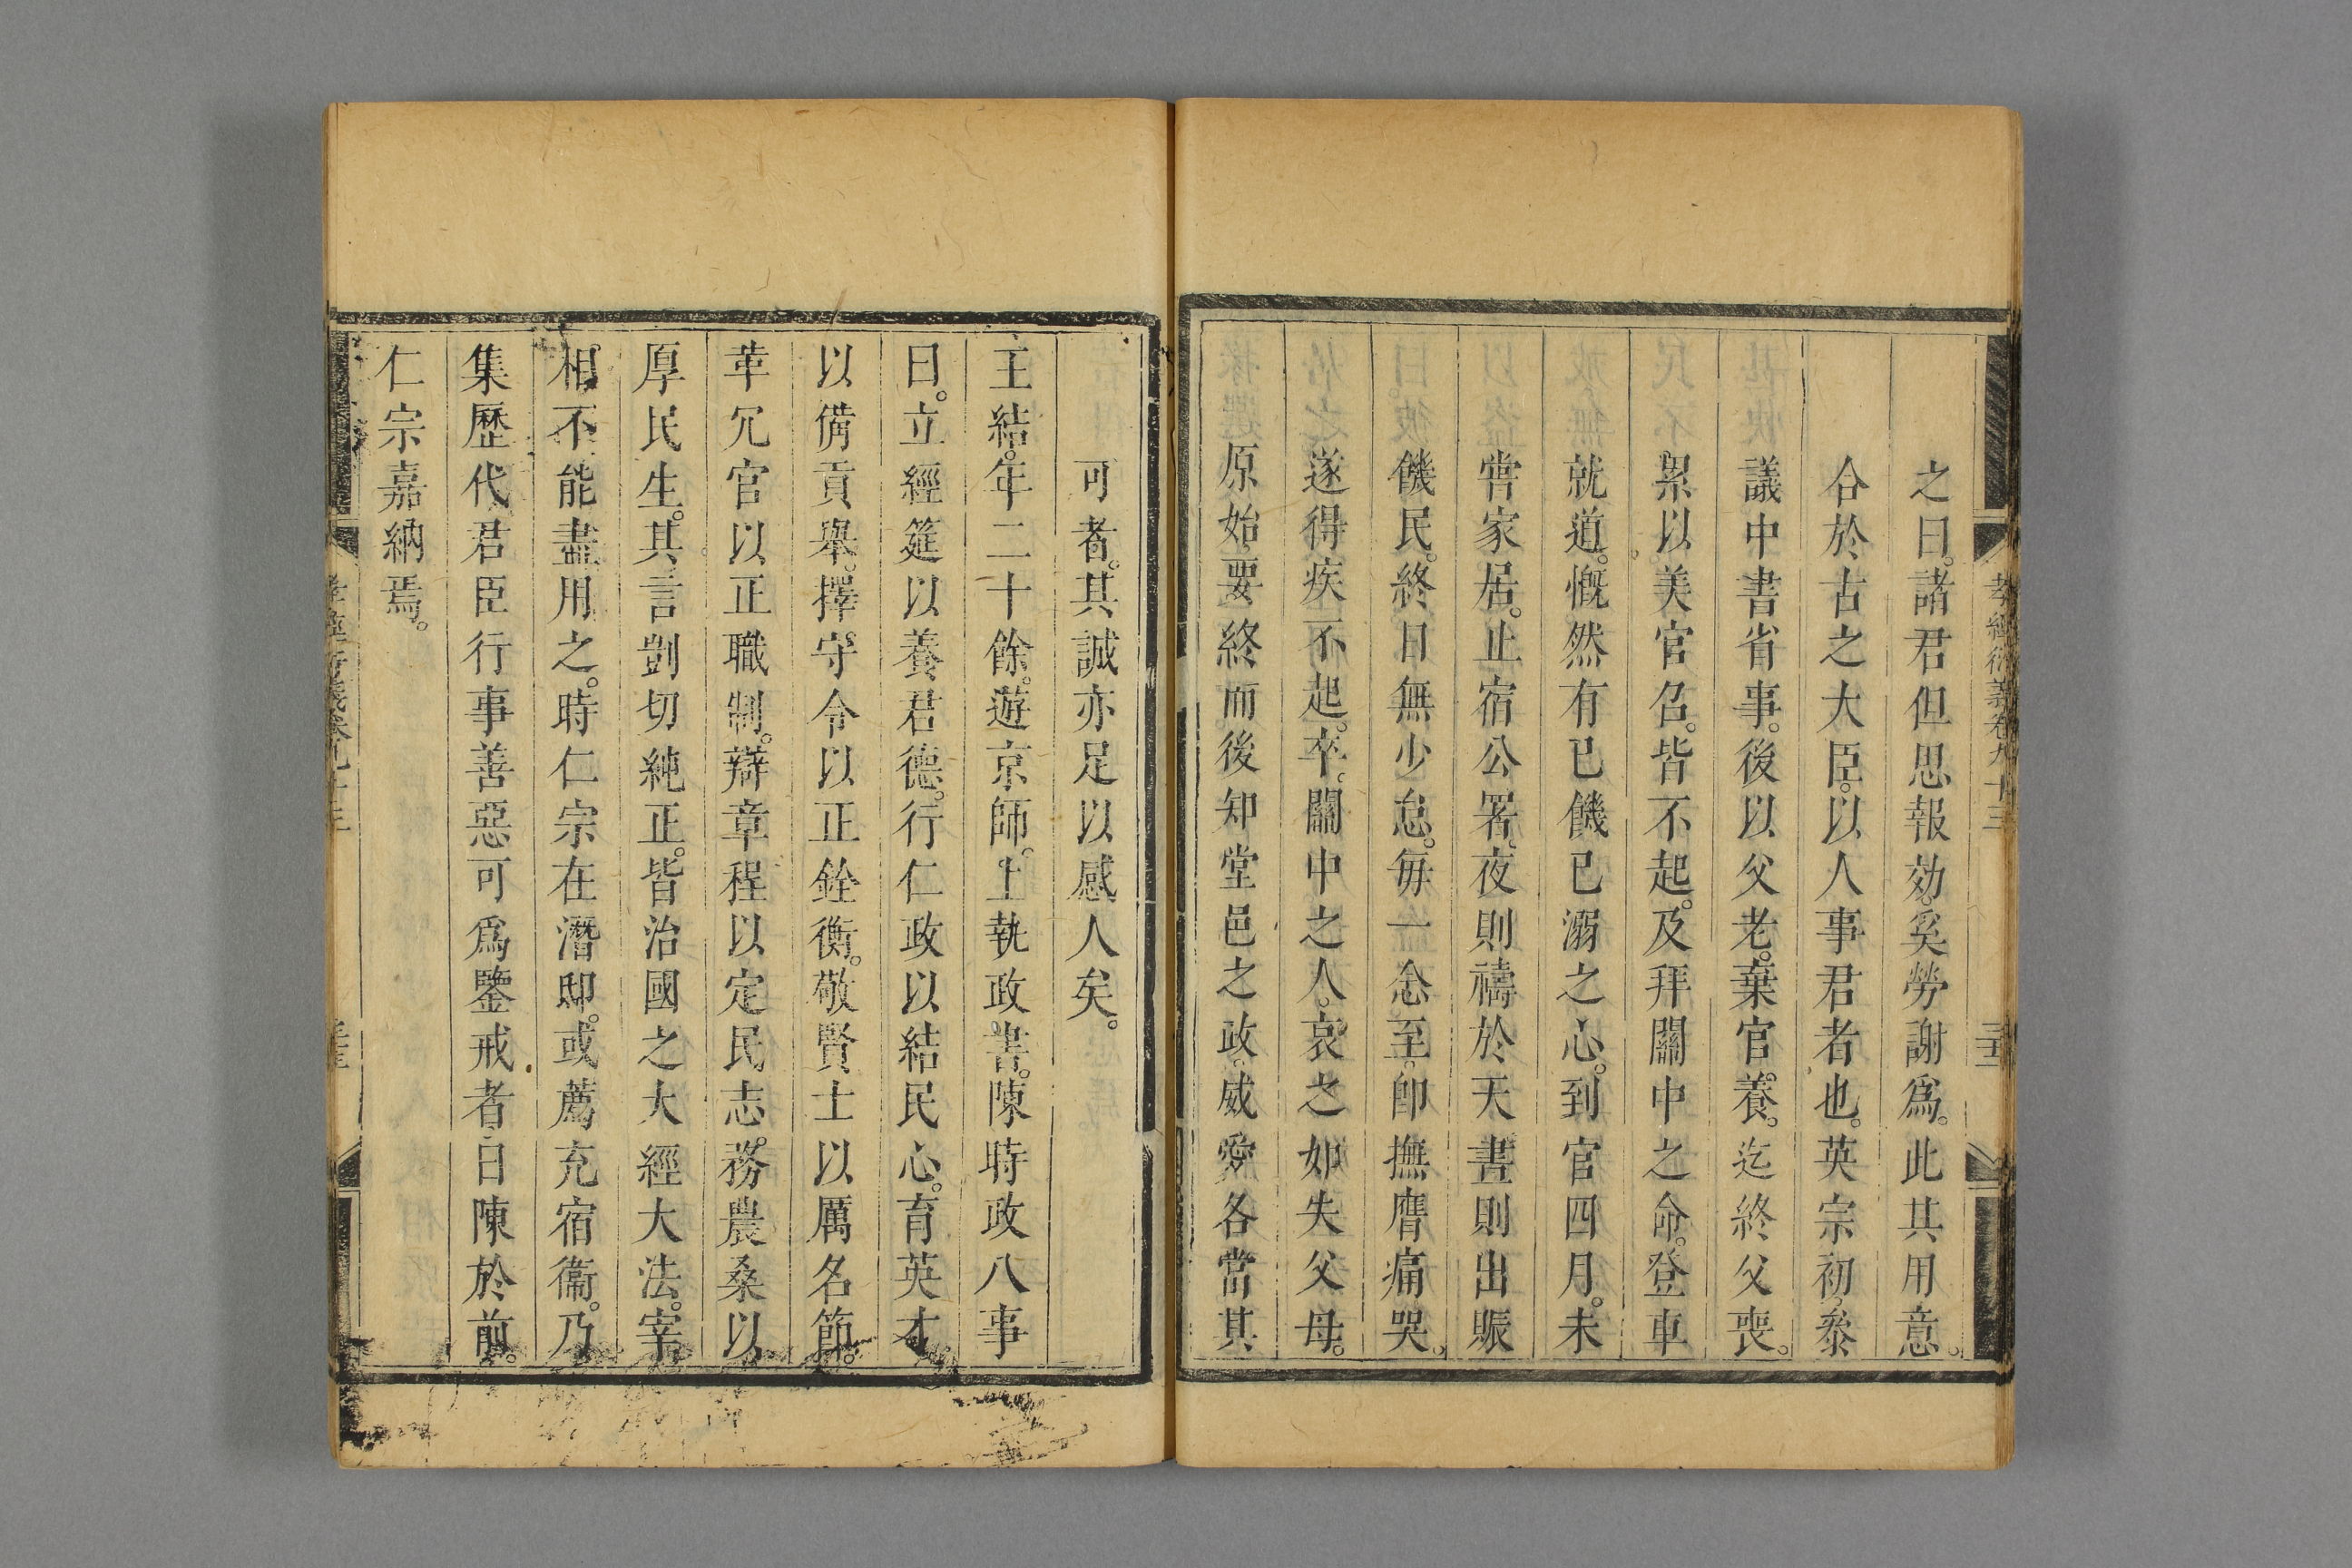 孝經衍義卷九十三
之曰。諸君但思報効。奚勞謝爲。此其用意。
合於古之大臣。以人事君者也。英宗初。叅
議中書省事。後以父老。棄官。養。迄終父喪。
累以美官召。皆不起。及拜關中之命。登車
就道。慨然有已饑已溺之心。到官四月。未
嘗家居。止宿公署。夜則禱於天晝則出賑
饑民。終日無少怠。毎一念至。卽撫膺痛哭。
遂得疾不起。卒。關中之人。哀之如失父母。
原始要終而後知堂邑之政。威愛各當其
可者。其誠亦足以感人矣。
王結。年二十餘。遊京師。上執政書。陳時政八事
曰。立經筵以養君德。行仁政以結民心。育英才
以備貢舉。擇守令以正銓衡。敬賢士以厲名節。
革冗官以正職制。辯章程以定民志。務農桑以
厚民生。其言剴切純正。皆治國之大經大法。宰
相不能盡用之。時仁宗在潛邸。或薦充宿衞。乃
集歷代君臣行事善惡可爲鑒戒者日陳於前。
仁宗嘉納焉。